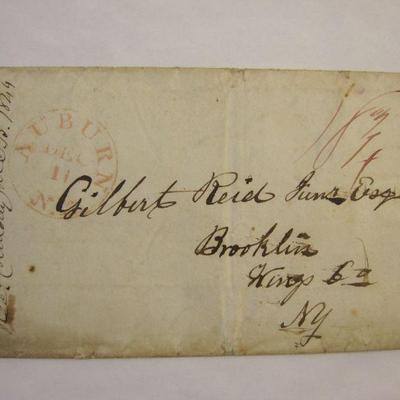 AUBURN
DEC
11
N.
18 3/4
Gilbert Reid Junr Esq
Brooklin
Kings Co
NY
1849